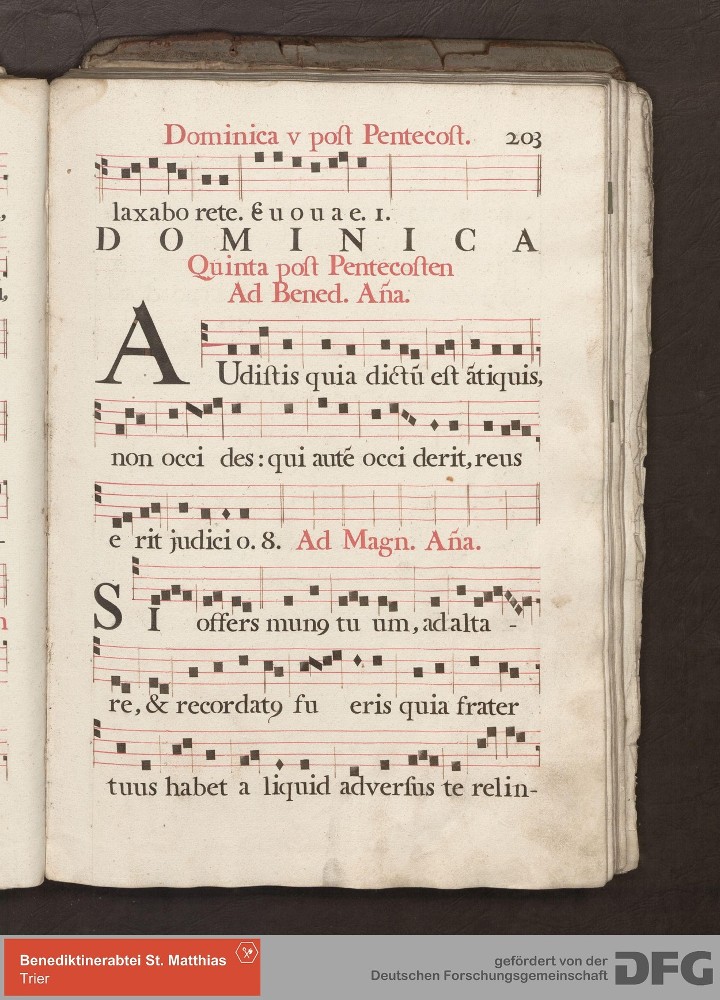 Dominica v poſt Pentecoſt. 203
laxabo rete. E u o u a e. 1.
DOMINICA
Quinta poſt Pentecoſten
Ad Bened. Aña.
AUdiſtis quia dictū eſt ātiquis,
non occi des: qui autē occi derit, reus
e rit judici o. 8. Ad Magn. Aña.
SI offers munꝯ tu um, ad alta -
re, & recordatꝯ fu eris quia frater
tuus habet a liquid adverſus te relin-
Benediktinerabtei St. Matthias
Trier
gefördert von der
Deutschen Forschungsgemeinschaft
DFG